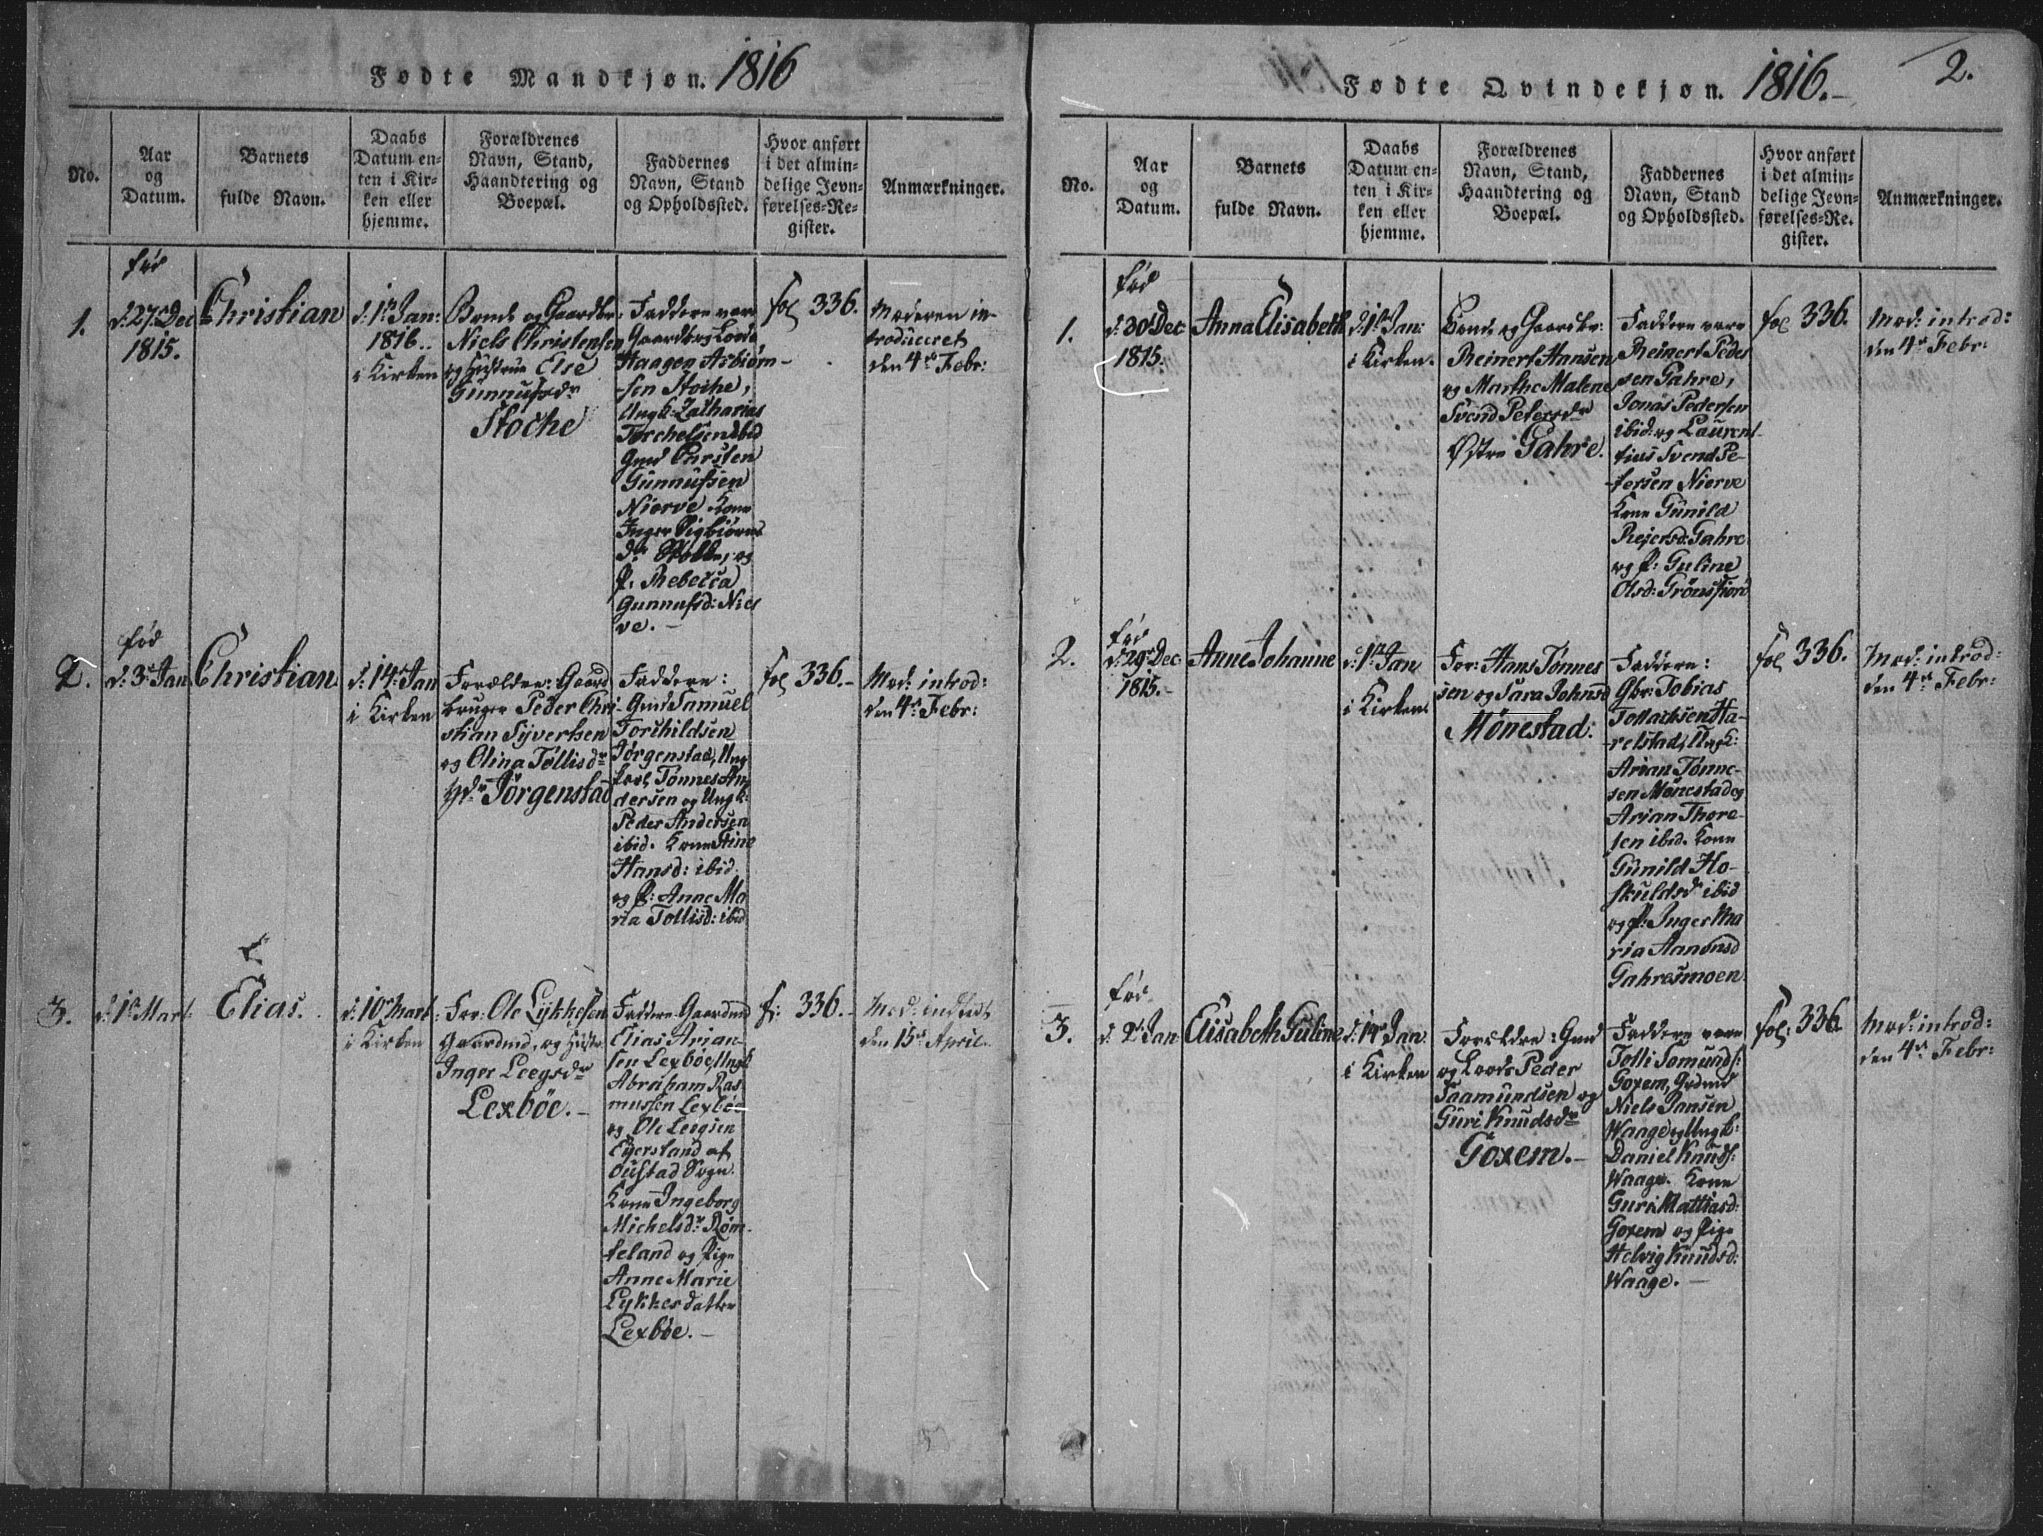 Fødte Mandkjøn. 1816
No.
Aar
og
Datum.
Barnets
fulde Navn.
Daabs
Datum en-
ten i Kir-
ken eller
hjemme.
Forældrenes
Navn, Stand,
Haandtering og
Boepæl.
Faddernes
Navn, Stand
og Opholdssted.
Hvor anført
i det almin-
delige Jevn-
førelses-Re-
gister.
Anmærkninger.
1.
fød
d: 27de Dec
1815.
Christian
d: 1ste Jan:
1816.
i Kirken
Bonde og Gaardbr:
Niels Christensen
og Hustrue Else
Gunnufsdr
Stoche
Faddere vare
Gaardbr og
Haagen Asbiørn-
sen Stoche,
Ungk: Zacharias
Torchelsen ibid
Gmd Carsten
Gunnufsen
Nierve Kone
Inger Sigbiørns
dr og
P: Rebecca
Gunnufsd: Nier
ve. —
fol 336.
Moderen in-
troduceret
den 4de Febr:
2.
fød
d: 3de Jan
Christian
d: 14de Jan
i Kirken
Forældre: Gaard
bruger Peder Chri
stian Syversen
og Olina Tollisdr
Jørgenstad
Faddere:
Gmd Samuel
Torkildsen
Jørgenstad, Ung
karl Tønnes An
dersen og Ungk:
Peder Andersen
ibid. Kone Stine
Hansd: ibid.
og P: Anne Ma
ria Tollisd: ibid
fol 336.-
Mod: introd:
den 4de Febr:
3.
d: 1ste Mart:
Elias.
d: 10de Mart:
i Kirken
For: Ole Lykkesen
Gaardmd, og Hustr
Inger Leegsdr
Lexbøe.-
Faddere Gaardmd
Elias Arian-
sen Lexbøe, Ungk
Abraham Ras
mussen Lexbøe
og Ole Leegsen
Eyersland af
Oustad Sogn.
Kone Ingeborg
Michelsdr Røm-
teland og Pige
Anne Marie
Lykkesdatter
Lexbøe. —
f: 336.-
Mod: indledt
den 15de April.
Fødte Qvindekjøn. 1816.-
2.
No.
Aar
og
Datum.
Barnets
fulde Navn.
Daabs
Datum en-
ten i Kir-
ken eller
hjemme.
Forældrenes
Navn, Stand,
Haandtering og
Boepæl.
Faddernes
Navn, Stand
og Opholdssted.
Hvor anført
i det almin-
delige Jevn-
førelses-Re-
gister.
Anmærkninger.
1.
fød
d: 30te Dec
1815.
Anna Elisabeth
d: 1ste Jan:
i Kirken.
Bonde og Gaardbr:
Reinert Hansen
og Marthe Malene
Svend Petersdr
Østre Gahre.
Faddere vare
Reinert Peder
sen Gahre,
Jonas Pedersen
ibid: og Laurent
tius Svend Pe-
tersen Nierve
Kone Gunild
Reiersd: Gahre
og P: Guline
Olsd: Grønsfiord
fol 336.
Mod: introd:
den 4de Febr:
2.
fød
d: 29de Dec
1815.-
Anne Johanne
d: 1ste Jan
i Kirken
For: Hans Tønnes
sen og Sara Johnsd
Mønestad:
Faddere:
Gbr: Tobias
Tollachsen Ha-
relstad, Ungk:
Arian Tønne-
sen Mønestad og
Arian Thore-
sen ibid. Kone
Gunild Ho-
skuldsdr ibid
og P: Inger Ma
ria Aanonsd
Gahresmoen
fol 336.
Mod: introd:
den 4de Febr:
3.
fød
d 2den Jan
Elisabeth Guline
d: 14de Jan
i Kirken
Forældre: Gmd
og Loods Peder
Saamundsen og
Guri Knudsdr
Goxem.-
Faddere vare
Tolli Samunds:
Goxem, Grdmd
Niels Jansen
Waage og Ungk:
Daniel Knuds:
Waage. Kone
Guri Mattiasd:
Goxem og Pige
Helvig Knudsd:
Waage. —
fol: 336
Mod: introd:
den 4de Febr: